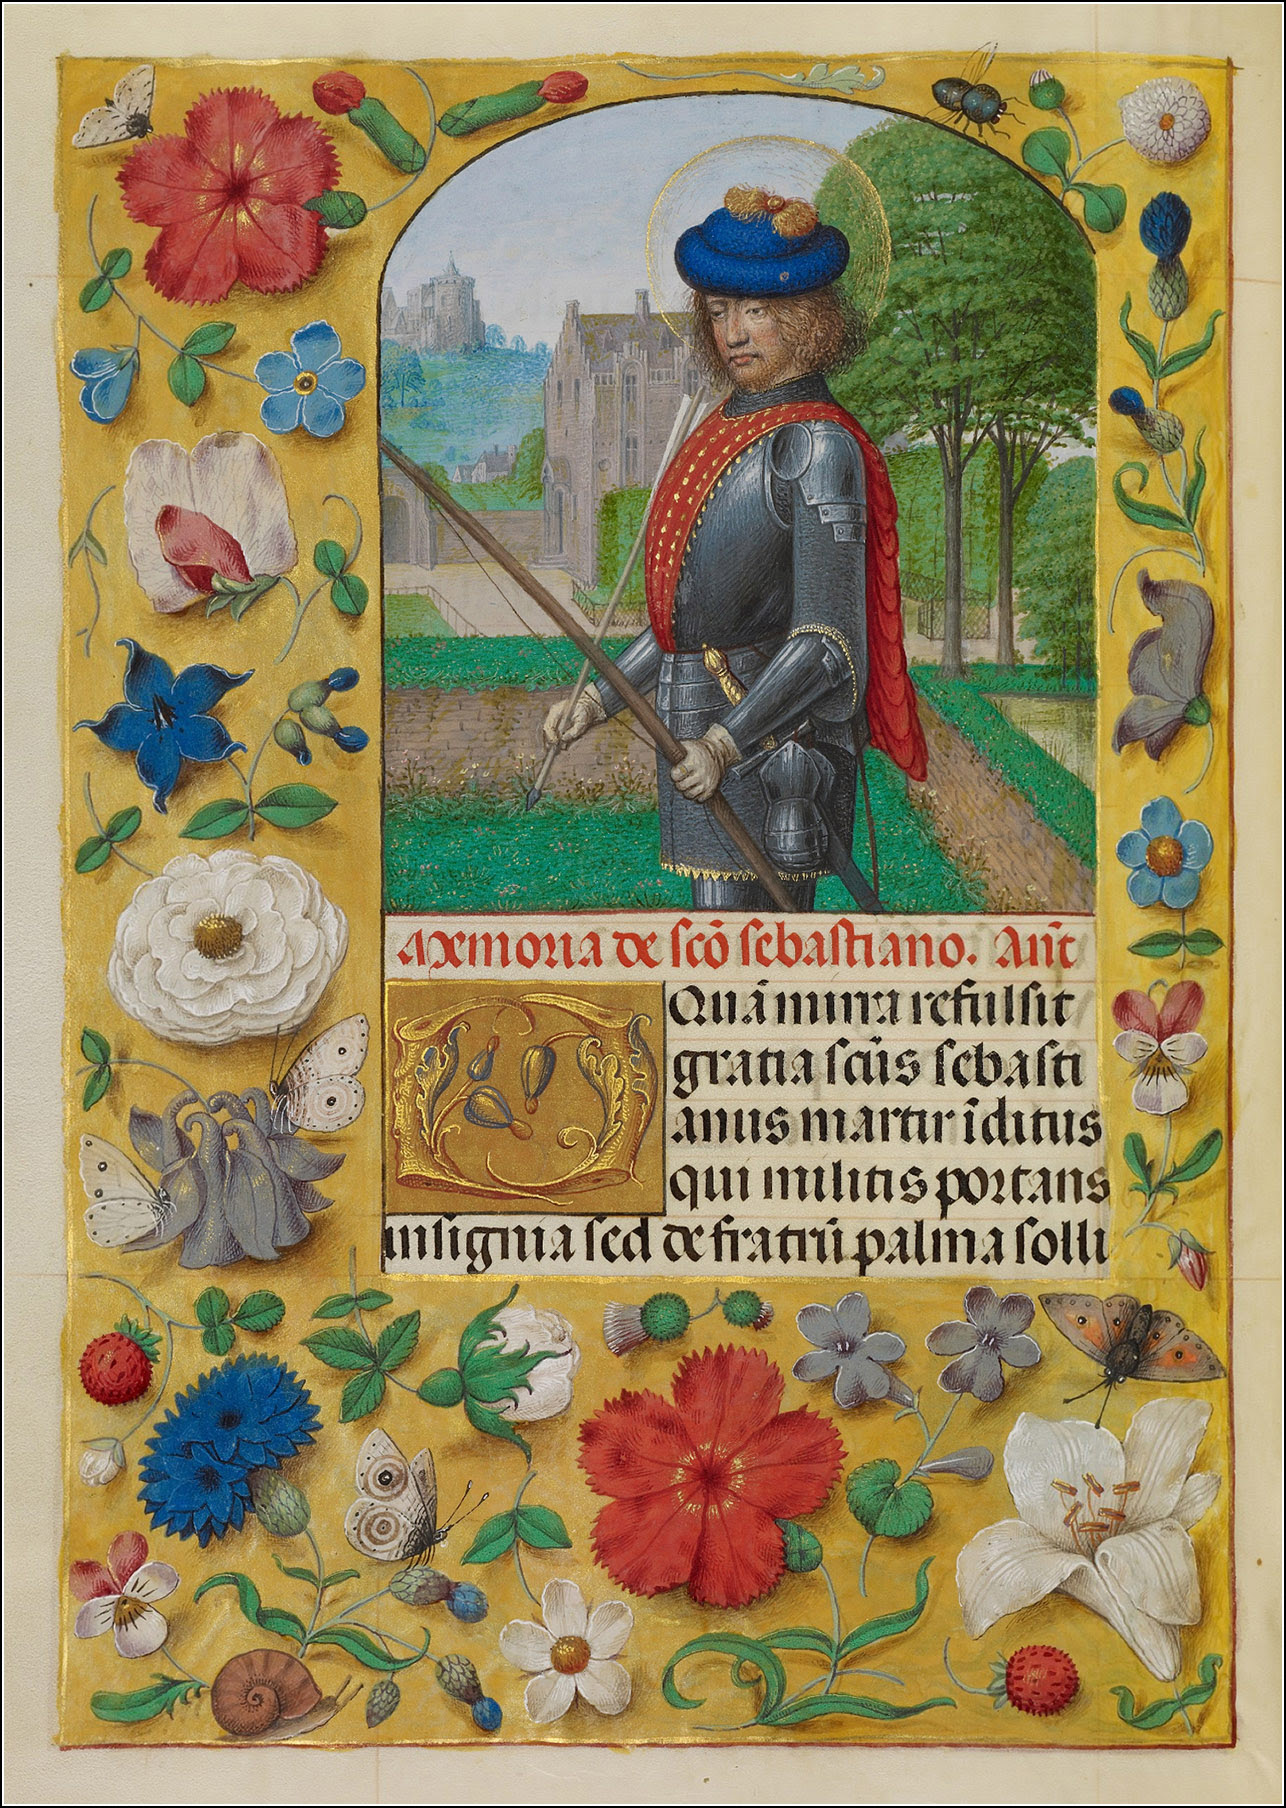 Memoria de scō sebastiano. Añt
Quā mira refulsit
gratia scūs sebasti
anus martir īditus
qui militis portans
insignia sed de fratrū palma solli